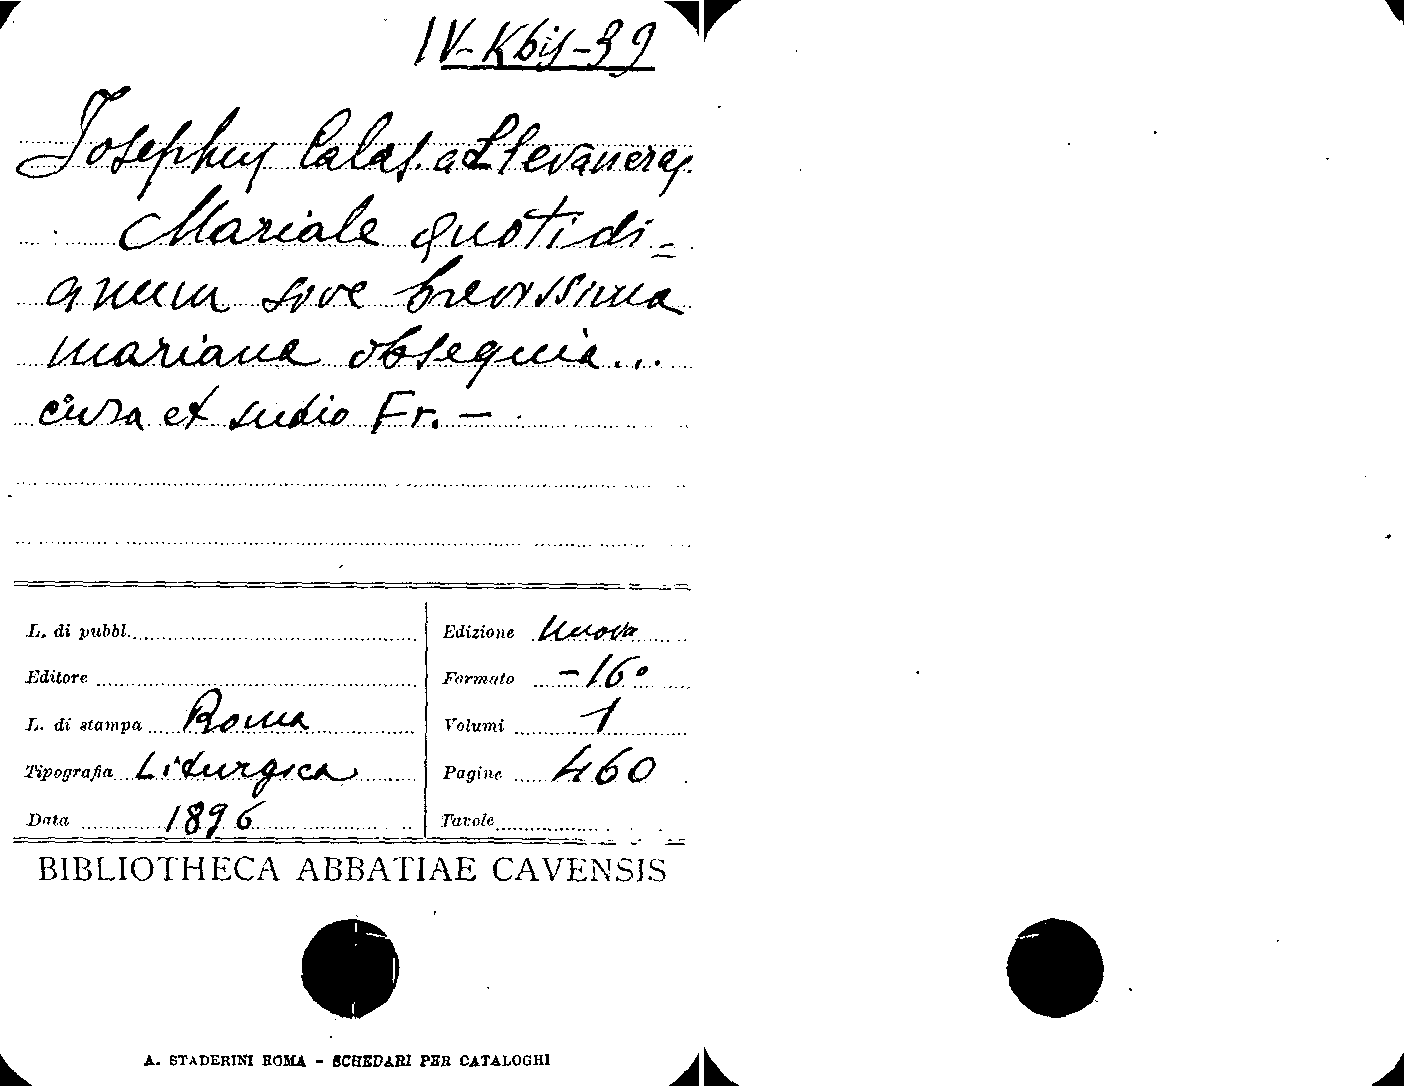 IV-Kbis-39
Josephus Calas. a Llevaneras
Mariale quotidi-
anum sive brevissima
mariana obsequia...
cura et sudio Fr. -
L. di pubbl.
Edizione Nuova
Editore
Formato -16°
L. di stampa Roma
Volumi 1
Tipografia Liturgica
Pagine 460
Data 1896
Tavole
BIBLIOTHECA ABBATIAE CAVENSIS
A. STADERINI ROMA - SCHEDARI PER CATALOGHI